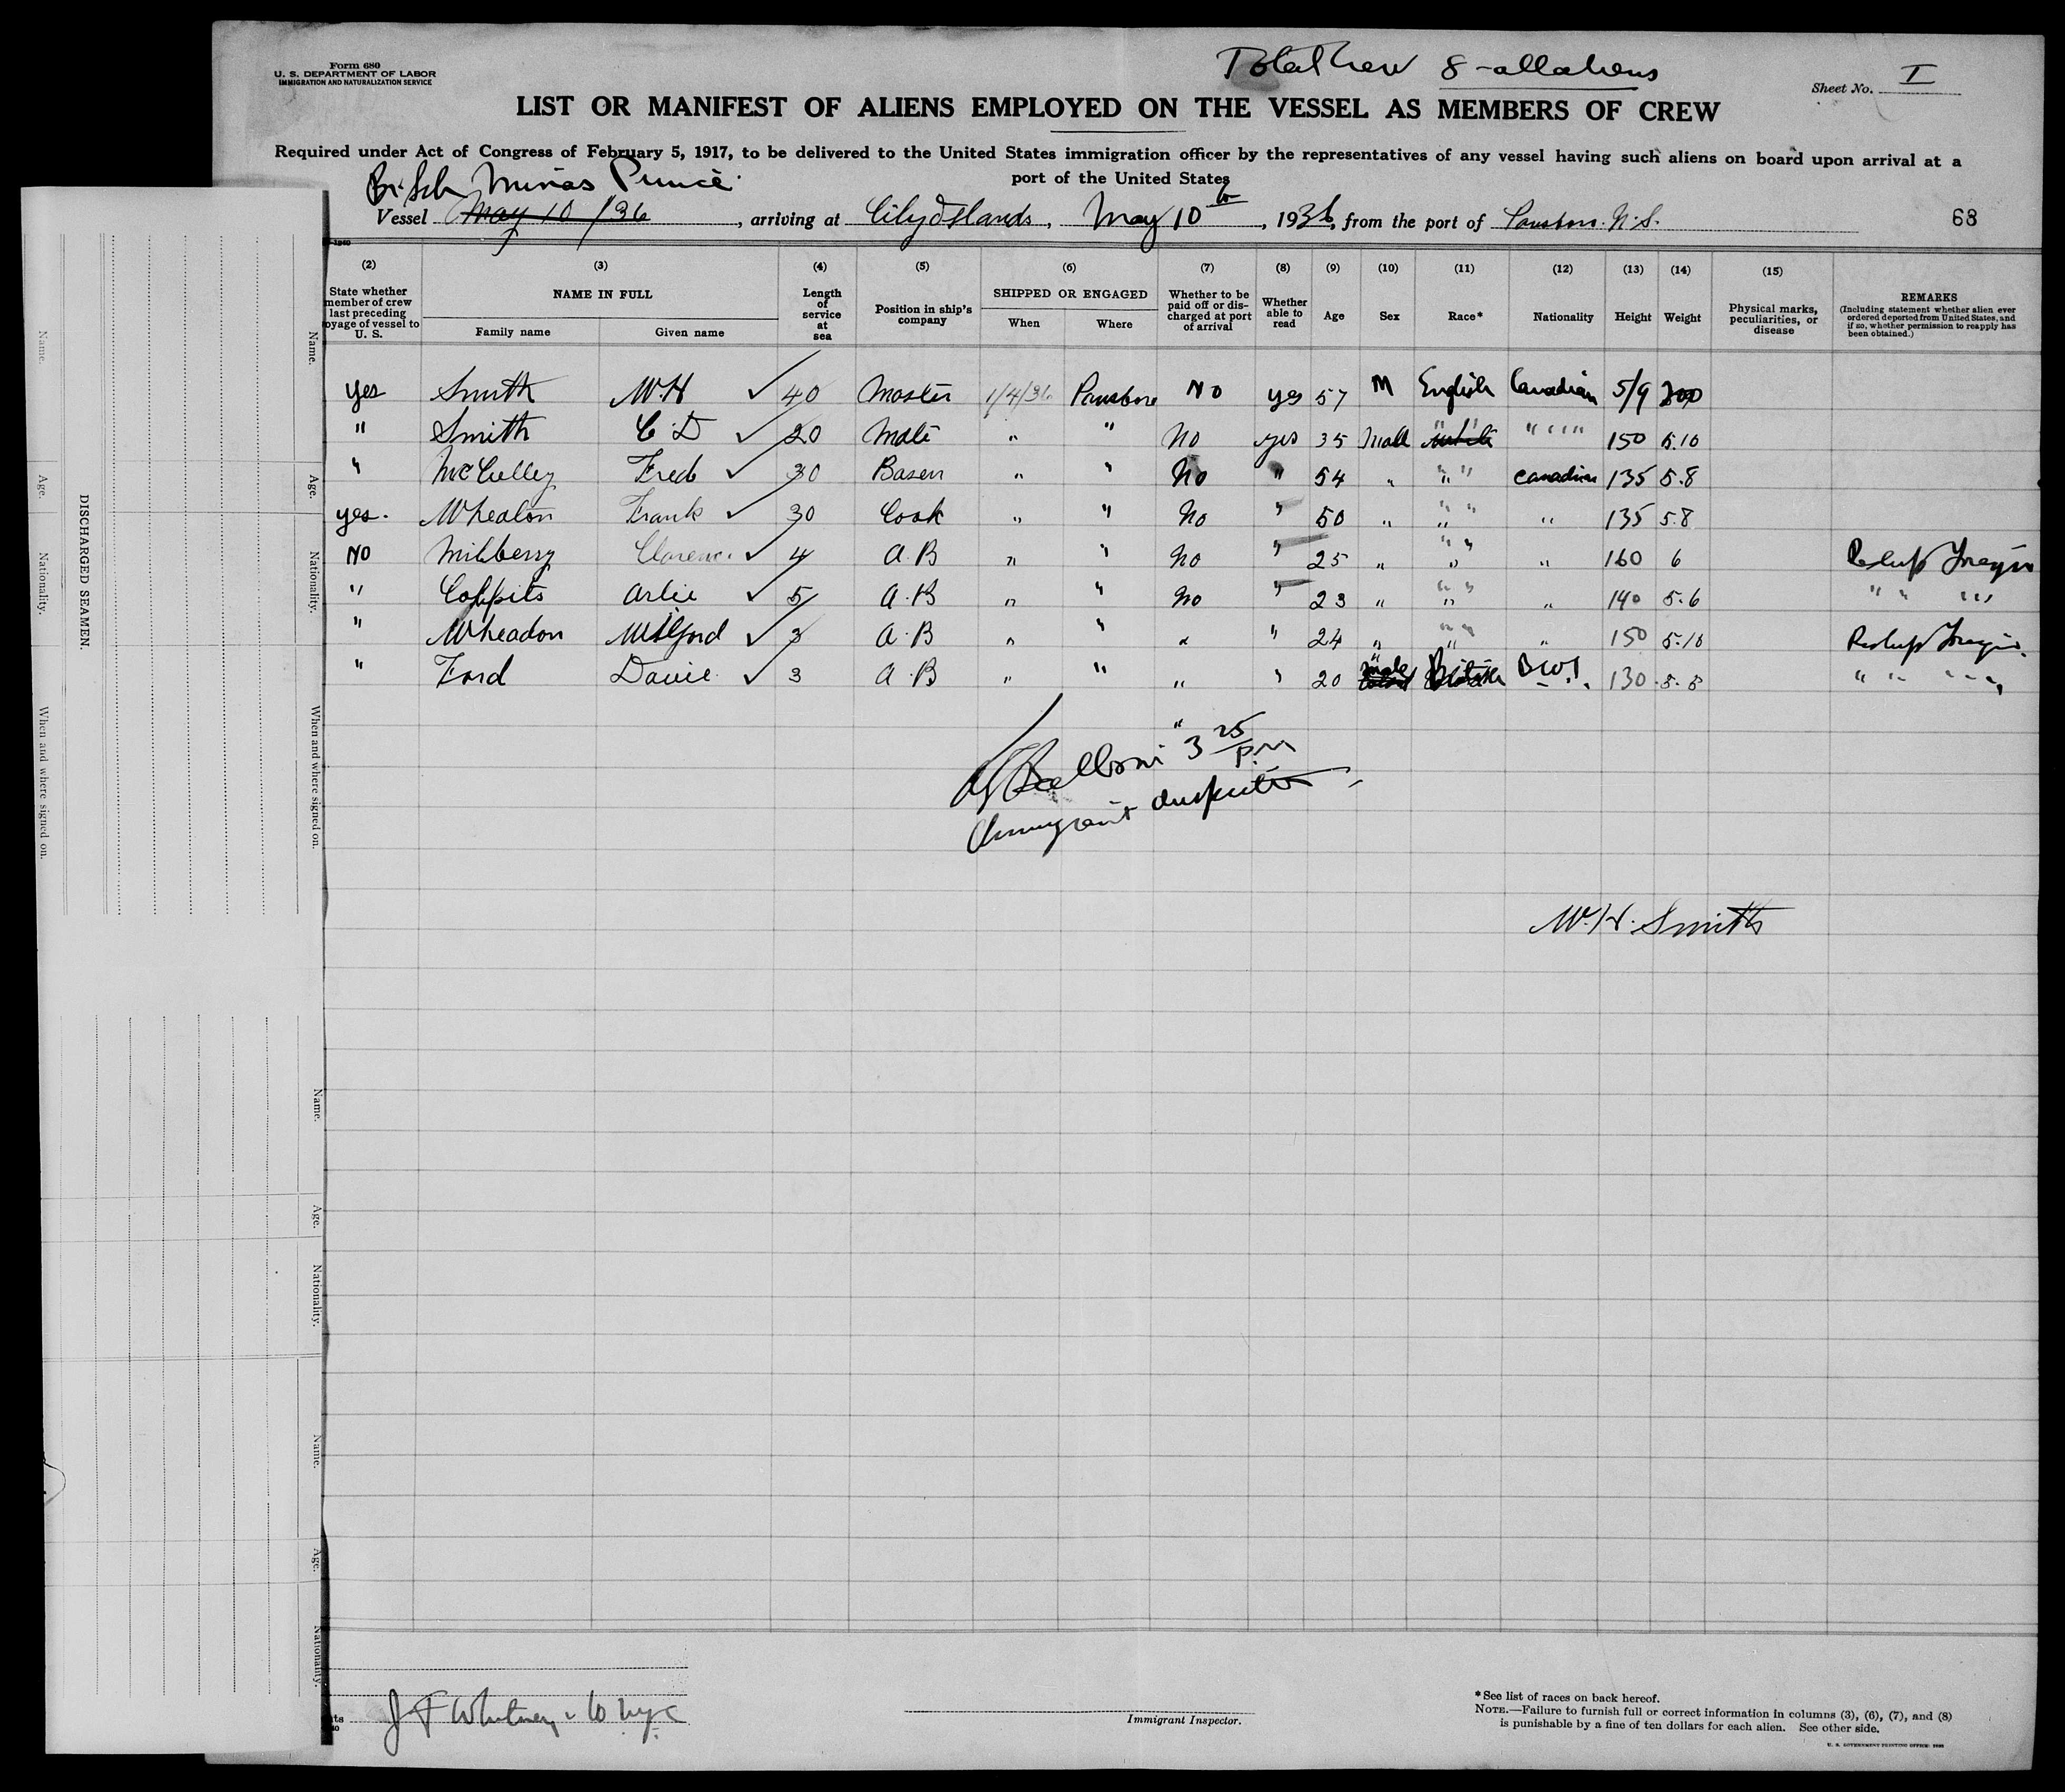 Form 680
U. S. DEPARTMENT OF LABOR
IMMIGRATION AND NATURALIZATION SERVICE
Total Crew 8 - all aliens
Sheet No. I
LIST OR MANIFEST OF ALIENS EMPLOYED ON THE VESSEL AS MEMBERS OF CREW
Required under Act of Congress of February 5, 1917, to be delivered to the United States immigration officer by the representatives of any vessel having such aliens on board upon arrival at a
port of the United States
Br. Sch Minas Prince
Vessel May 10/36, arriving at City Islands, May 10th, 1936, from the port of N.S.
68
(2) (3) (4) (5) (6) (7) (8) (9) (10) (11) (12) (13) (14) (15)
State whether member of crew last preceding oyage of vessel to U. S.
NAME IN FULL
Family name
Given name
Length of service at sea
Position in ship's company
SHIPPED OR ENGAGED
When
Where
Whether to be paid off or discharged at port of arrival
Whether able to read
Age
Sex
Race*
Nationality
Height
Weight
Physical marks, peculiarities, or disease
REMARKS
(Including statement whether alien ever ordered deported from United States, and if so, whether permission to reapply has been obtained.)
yes Smith W.H ✓ 40 Master 1/4/36 No yes 57 M English Canadian 5/9 200
" Smith C.D ✓ 20 Mate " " No yes 35 Male " " " " " " 150 5.10
" McCulley Fred ✓ 30 Bosen " " No " 54 " " " Canadian 135 5.8
yes. Whealon Frank ✓ 30 Cook " " No " 50 " " " " 135 5.8
No Milberry Clarence ✓ 4 A.B " " No " 25 " " " " 160 6
" Coffits Arlie ✓ 5 A.B " " No " 23 " " " " 140 5.6 " " " "
" Wheadon Milford ✓ 3 A.B " " " " 24 " " " " 150 5.10
" Ford Davie ✓ 3 A.B " " " " 20 male B.W.I. 130 5.8 " " " "
3 25 p.m
Immigrant Inspector
W.H. Smith
DISCHARGED SEAMEN.
Name.
Age.
Nationality.
When and where signed on.
Name.
Age.
Nationality.
When and where signed on.
Name.
Age.
Nationality.
Name.
Age.
Nationality.
J F Whitney & Co N.Y.C
Immigrant Inspector.
*See list of races on back hereof.
NOTE.—Failure to furnish full or correct information in columns (3), (6), (7), and (8)
is punishable by a fine of ten dollars for each alien. See other side.